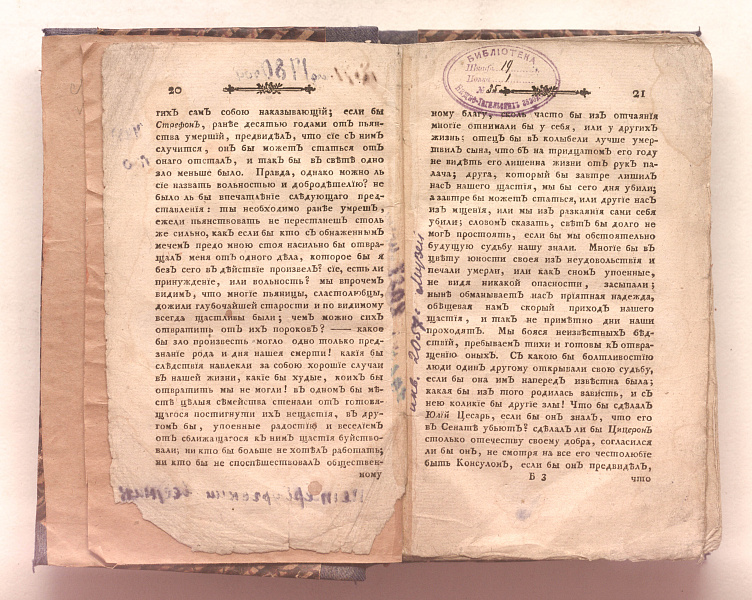 20
гихъ самъ собою наказывающій; если бы
Стрефонъ, ранѣе десятью годами отъ пьян-
ства умершій, предвидѣлъ, что сіе съ нимъ
случится, онъ бы можетъ статься отъ
онаго отсталъ, и такъ бы въ свѣтѣ одно
зло меньше было. Правда, однако можно ль
сіе назвать вольностью и добродѣтелію? не
было ль бы впечатлѣніе слѣдующаго пред-
ставленія: ты необходимо ранѣе умрешь,
ежели пьянствовать не перестанешь столь
же сильно, какъ если бы кто съ обнаженнымъ
мечемъ предо мною стоя насильно бы отвра-
щалъ меня отъ одного дѣла, которое бы я
безъ сего въ дѣйствіе произвелъ? сіе, есть ли
принужденіе, или вольность? мы впрочемъ
видимъ, что многіе пьяницы, сластолюбцы,
дожили глубочайшей старости и по видимому
всегда щастливы были; чемъ можно сихъ
отвратить отъ ихъ пороковъ? —— какое
бы зло произвесть могло одно только пред-
знаніе рода и дня нашея смерти! какія бы
слѣдствія навлекли за собою хорошіе случаи
въ нашей жизни, какіе бы худые, коихъ бы
отвратить мы не могли! въ одномъ бы мѣ-
стѣ цѣлыя сѣмейства стенали отъ готовя-
щагося постигнути ихъ нещастія, въ дру-
гомъ бы, упоенные радостію и веселіемъ
отъ сближающагося къ нимъ щастія буйство-
вали; ни кто бы больше не хотѣлъ работать;
ни кто бы не споспѣшествовалъ обществен-
ному
Петербургский вестник
БИБЛІОТЕКА
Шкафъ 19
Полка 1
№ 35
21
ному благу, сколь часто бы изъ отчаянія
многіе отнимали бы у себя, или у другихъ
жизнь; отецъ бы въ колыбели лучше умер-
твилъ сына, что бъ на тридцатомъ его году
не видѣть его лишенна жизни отъ рукъ па-
лача; друга, который бы завтре лишилъ
насъ нашего щастія, мы бы сего дня убили;
а завтре бы можетъ статься, или другіе насъ
изъ мщенія, или мы изъ разкаянія сами себя
убили; словомъ сказать, свѣтъ бы долго не
могъ простоять, если бы мы обстоятельно
будущую судьбу нашу знали. Многіе бы въ
цвѣту юности своея изъ неудовольствія и
печали умерли, или какъ сномъ упоенные,
не видя никакой опасности, засыпали;
нынѣ обманываетъ насъ пріятная надежда,
обѣщевая намъ скорый приходъ нашего
щастія, и такъ не примѣтно дни наши
проходятъ. Мы бояся неизвѣстныхъ бѣд-
ствій, пребываемъ тихи и готовы къ отвра-
щенію оныхъ. Съ какою бы болтливостію
люди одинъ другому открывали свою судьбу,
если бы она имъ напередъ извѣстна была;
какая бы изъ того родилась зависть, и съ
нею коликіе бы другіе злы! Что бы сдѣлалъ
Юлій Цесарь, если бы онъ зналъ, что его
въ Сенатѣ убьютъ? сдѣлалъ ли бы Цицеронъ
столько отечеству своему добра, согласился
ли бы онъ, не смотря на все его честолюбіе
быть Консуломъ, если бы онъ предвидѣлъ,
Б 3 что